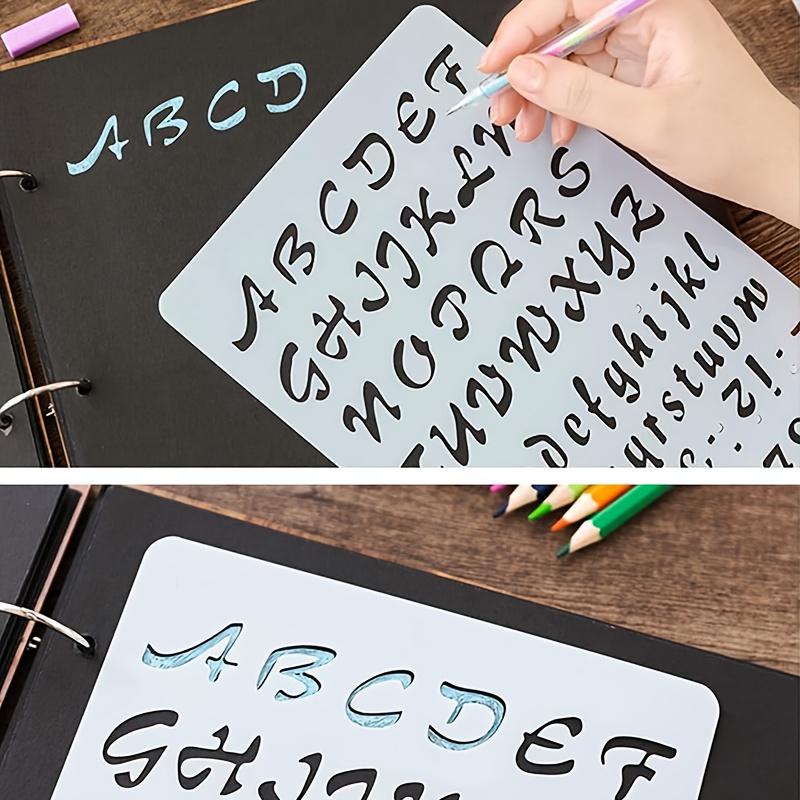 ABCD
ABCDEF
GHIJKLM
NOPQRS
TUVWXYZ
defghijkl
qrstuvw
ABCDEF
GHIJK